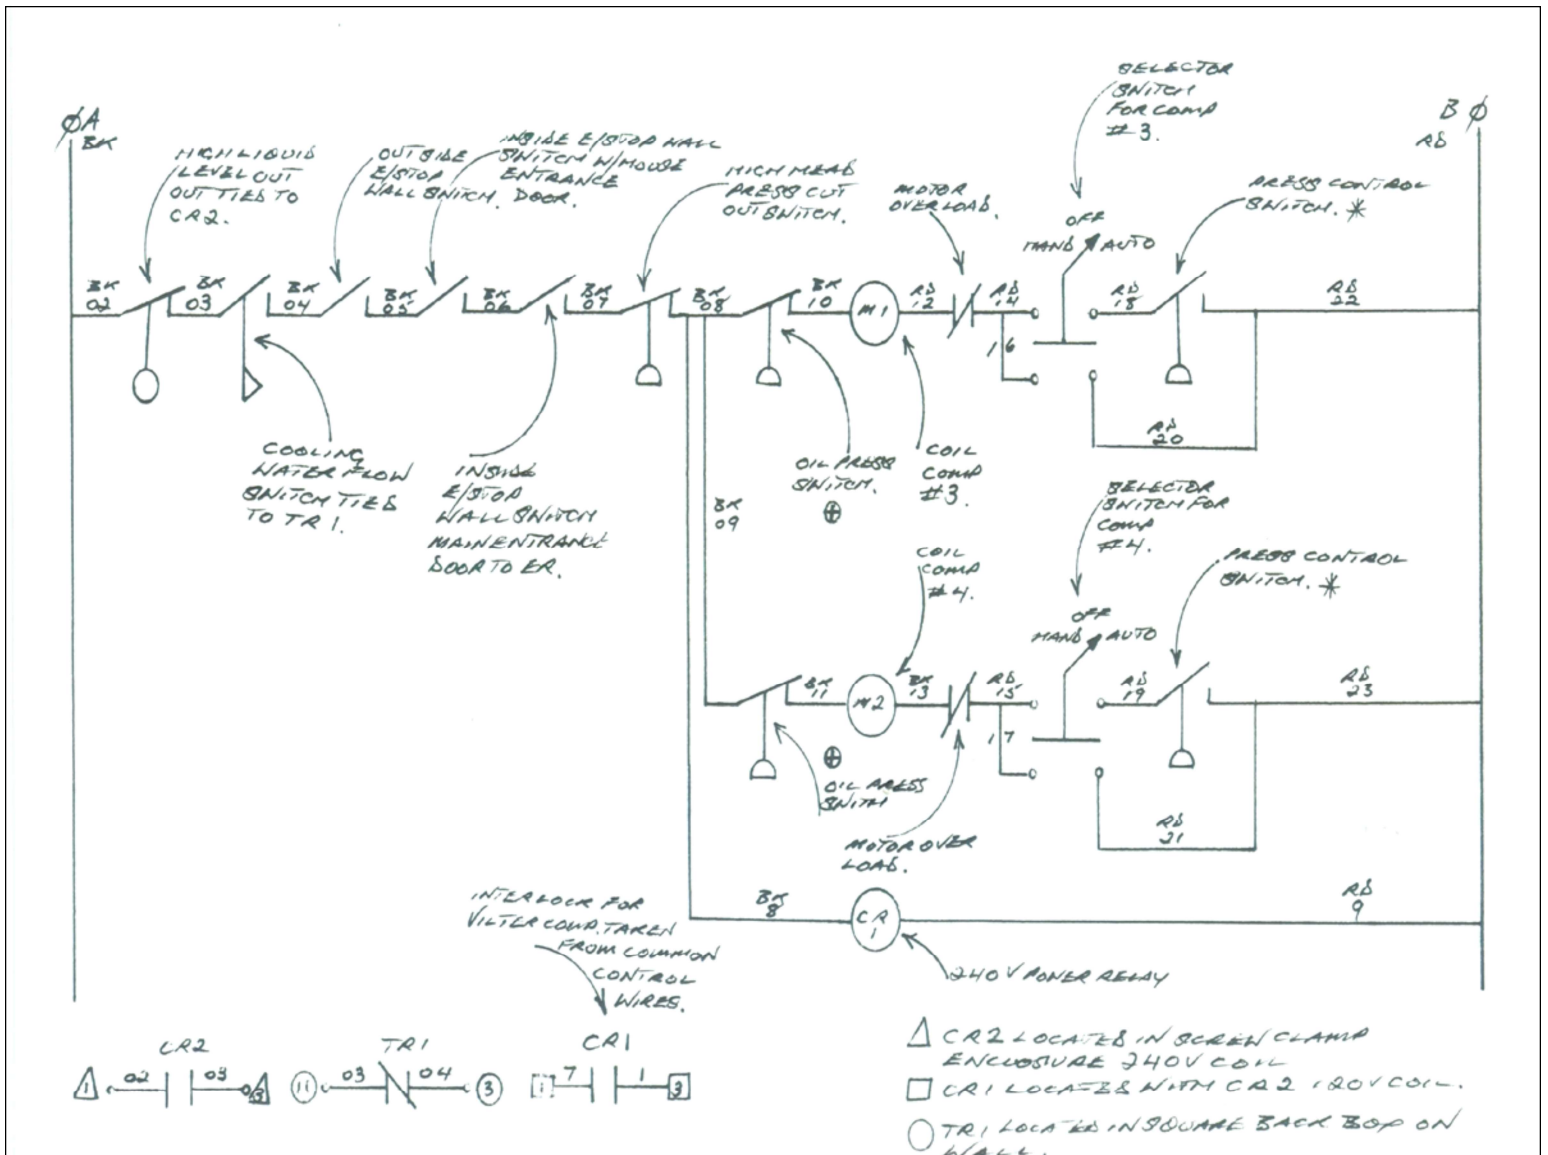 ØA
BK
B Ø
RD
HIGH LIQUID
LEVEL OUT
OUT TIED TO
CR2.
OUTSIDE
E/STOP
WALL SWITCH.
INSIDE E/STOP WALL
SWITCH W/HOUSE
ENTRANCE
DOOR.
HIGH HEAD
PRESS CUT
OUT SWITCH.
MOTOR
OVERLOAD.
SELECTOR
SWITCH
FOR COMP
#3.
PRESS CONTROL
SWITCH. *
OFF
HAND AUTO
BK
02
BK
03
BK
04
BK
05
BK
06
BK
07
BK
08
BK
10
M1
RD
12
RD
14
16
RD
18
RD
22
RD
20
COOLING
WATER FLOW
SWITCH TIED
TO TR1.
INSIDE
E/STOP
WALL SWITCH
MAIN ENTRANCE
DOOR TO ER.
OIL PRESS
SWITCH.
⊕
COIL
COMP
#3.
BK
09
SELECTOR
SWITCH FOR
COMP
#4.
COIL
COMP
#4.
PRESS CONTROL
SWITCH. *
OFF
HAND AUTO
BK
11
M2
BK
13
RD
15
17
RD
19
RD
23
RD
21
⊕
OIL PRESS
SWITH
MOTOR OVER
LOAD.
BK
8
CR
1
RD
9
240V POWER RELAY
INTERLOCK FOR
VILTER COMP. TAKEN
FROM COMMON
CONTROL
WIRES.
CR2
1 02 03 3
TR1
11 03 04 3
CR1
1 7 1 3
△ CR2 LOCATED IN SCREW CLAMP
ENCLOSURE 240V COIL
□ CR1 LOCATED WITH CR2 120V COIL.
○ TR1 LOCATED IN SQUARE BACK BOX ON
WALL.